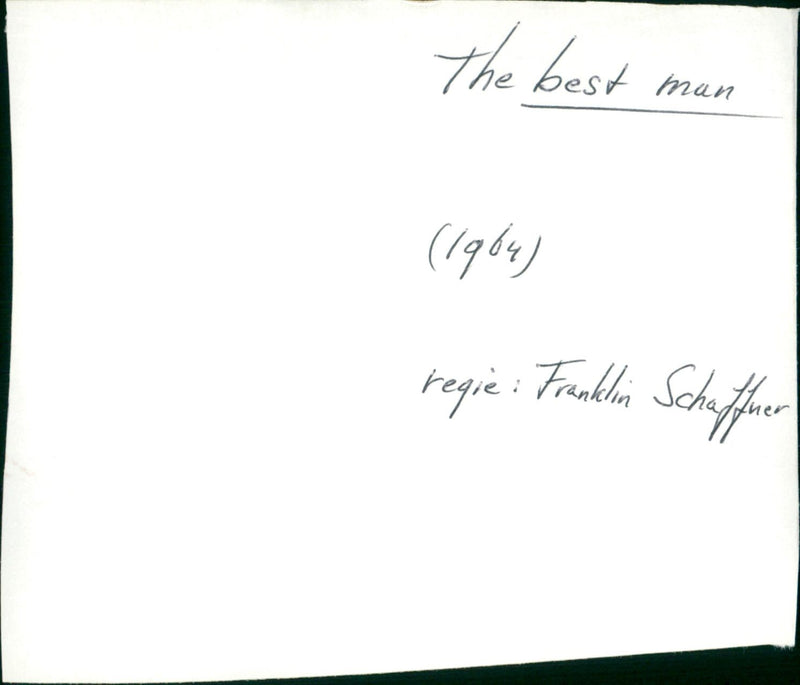 The best man
(1964)
regie: Franklin Schaffner